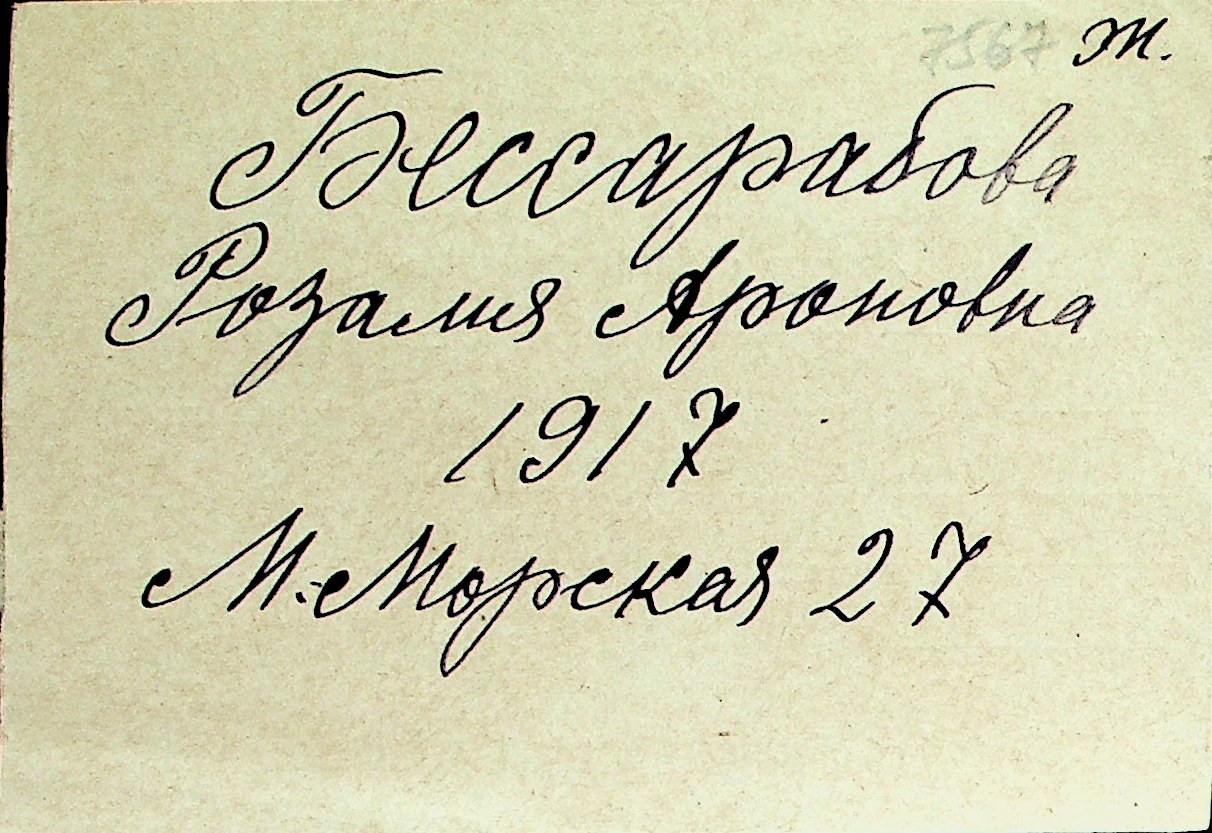 7567 Ж.
Бессарабова
Розалия Ароновна
1917
М. Морская 27